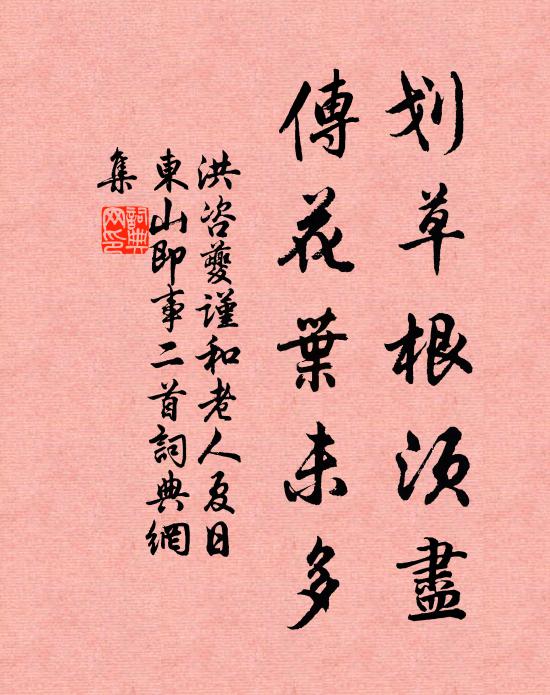 划草根须盡
傳花葉未多
洪咨夔謹和老人夏日
東山即事二首詞典網
集
詞典網印